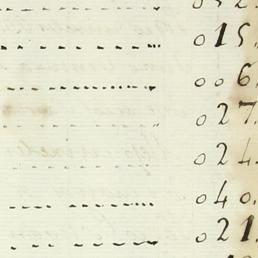 015.
006.
027.
024.
040.
021.